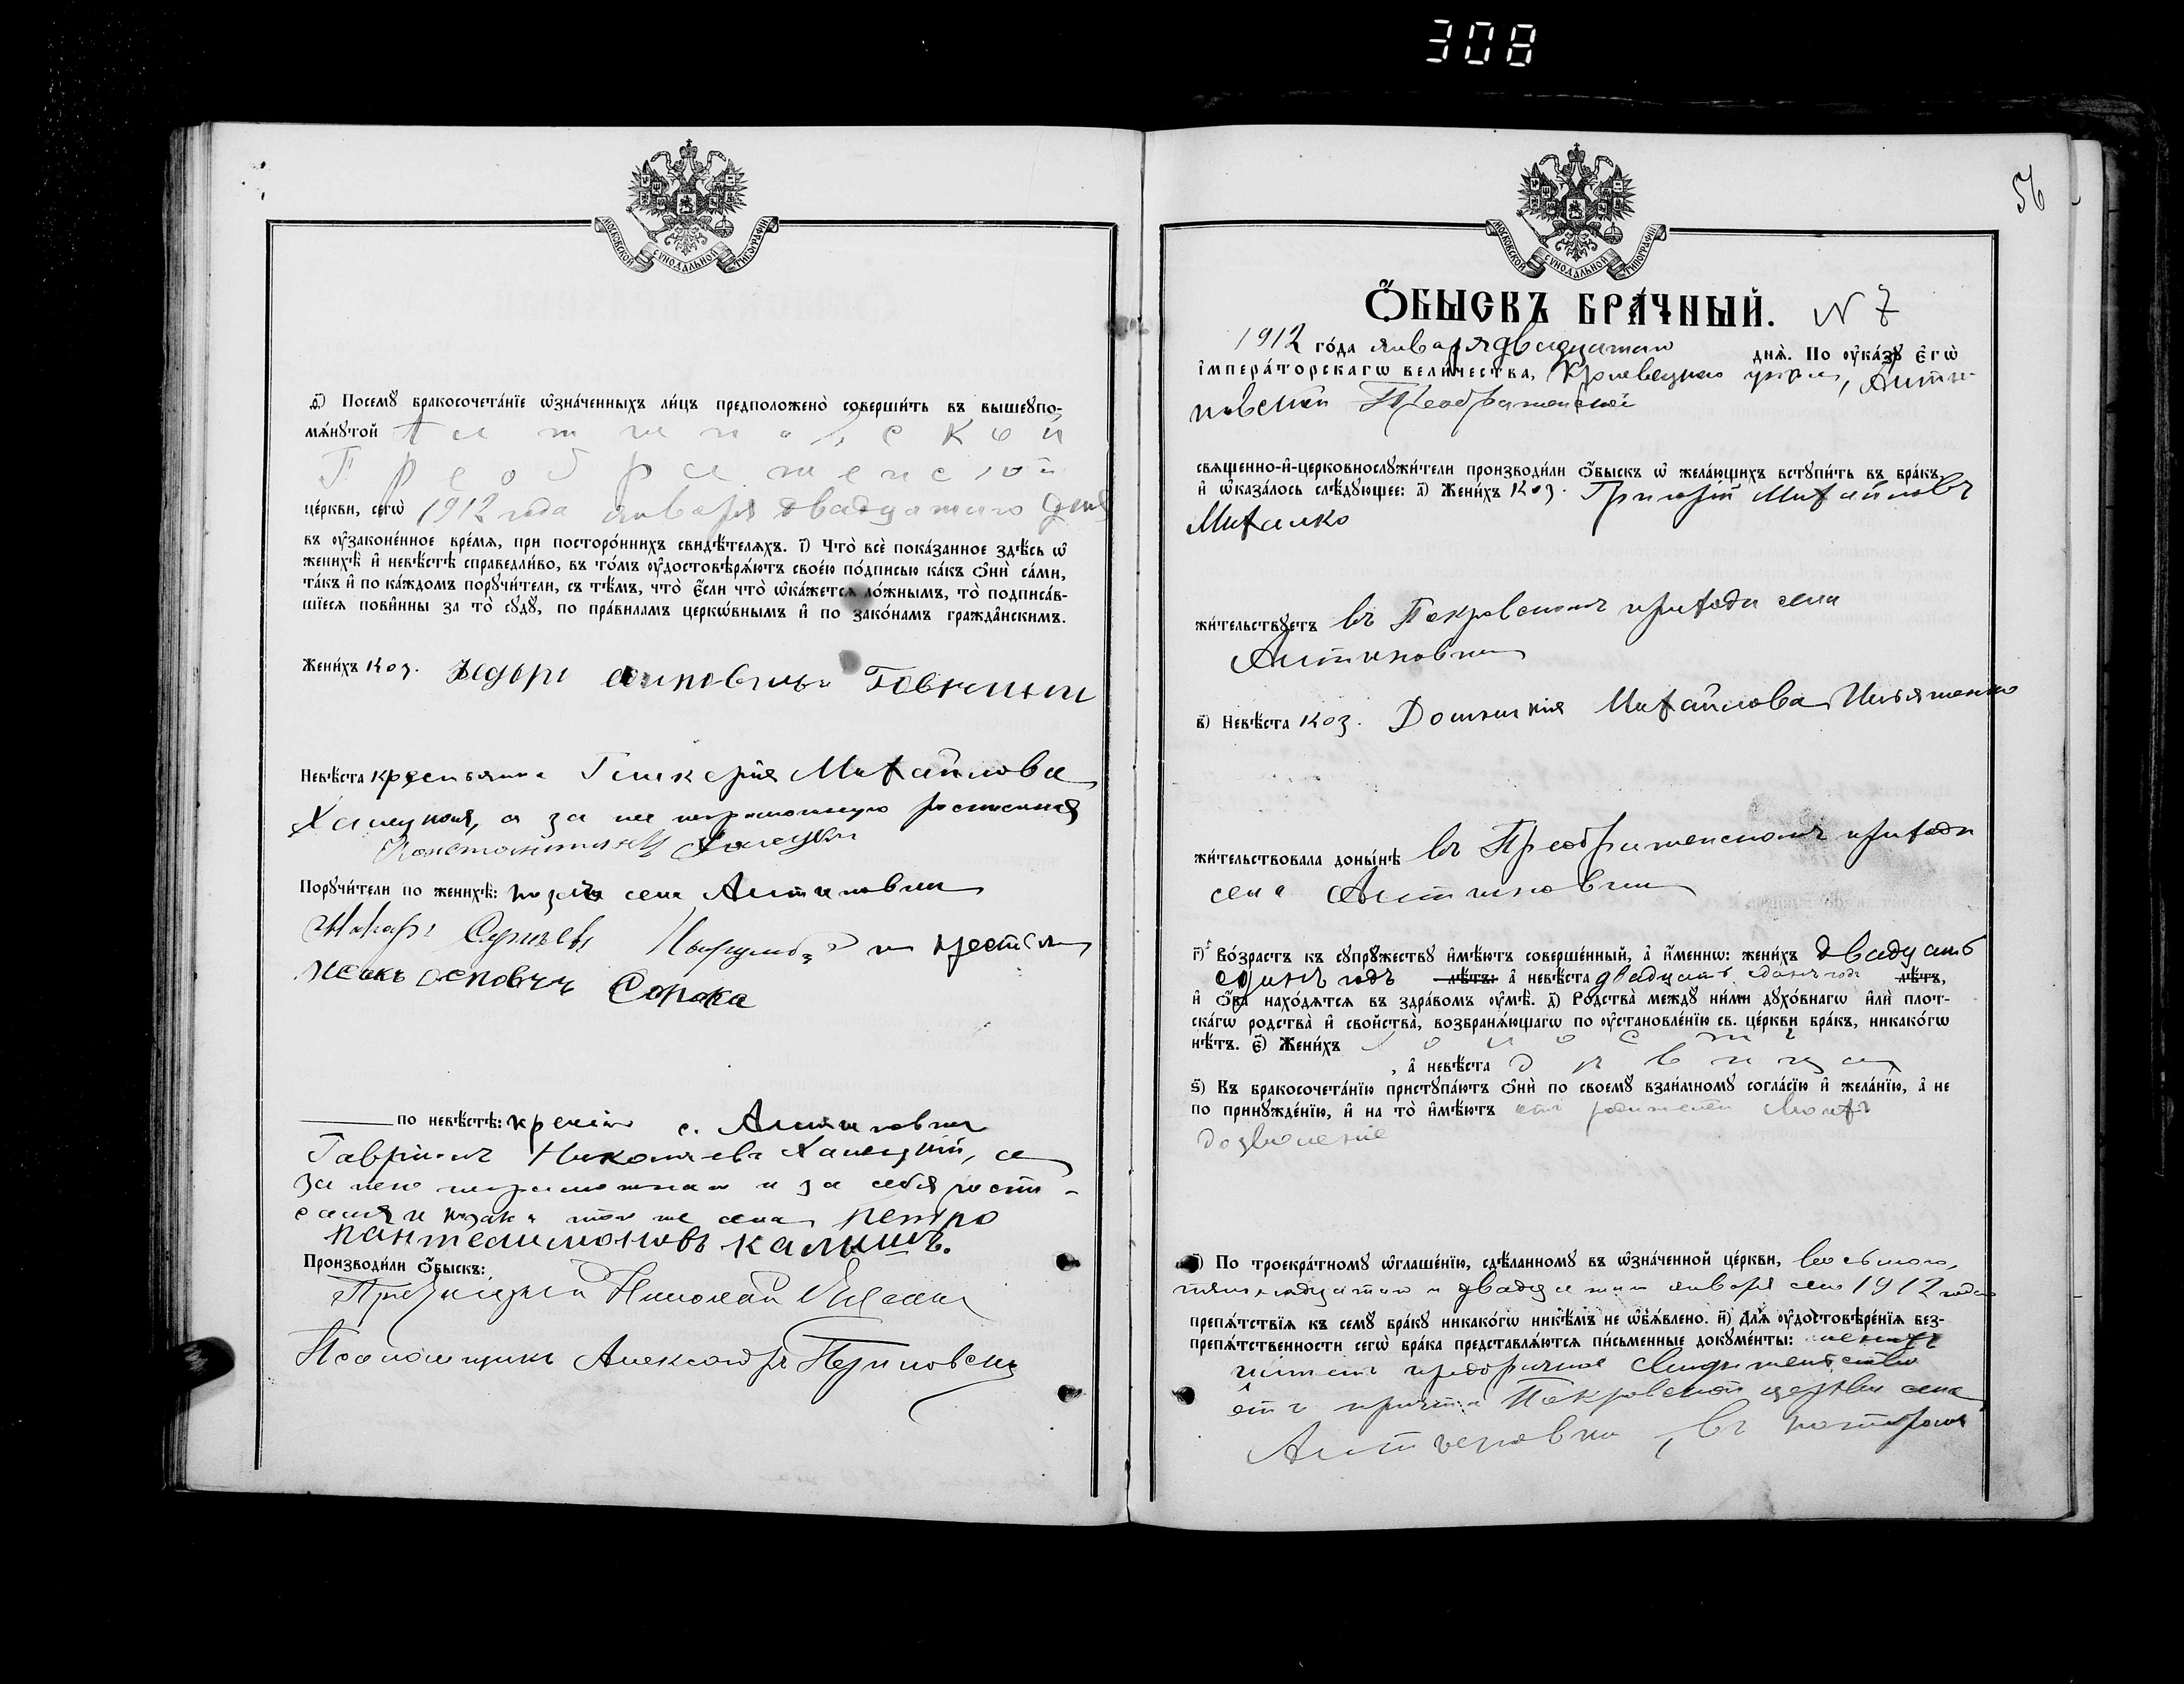 308
МОСКОВСКОЙ СѴНОДАЛЬНОЙ ТИПОГРАФІИ
Посемꙋ̀ бракосочета́нїе ѡ҆зна́ченныхъ ли́цъ предположено̀ соверши́ть въ вышеꙋпо-
мѧ́нꙋтой Алтыновской
Преображенской
це́ркви, сегѡ̀ 1912 года января двадцатаго дня
въ ᲂу҆законе́нное вре́мѧ, при посторо́ннихъ свидѣ́телѧхъ. і҃) Что̀ всѐ пока́занное здѣ́сь ѡ҆
женихѣ̀ и҆ невѣ́стѣ справедли́во, въ то́мъ ᲂу҆достовѣрѧ́ютъ свое́ю по́дписью ка́къ ѻ҆нѝ са́ми,
та́къ и҆ по ка́ждомъ порꙋчи́тели, съ тѣ́мъ, что̀ є҆́сли что̀ ѡ҆ка́жетсѧ ло́жнымъ, то̀ подписа́в-
шїесѧ пови́нны за то̀ сꙋдꙋ̀, по пра́виламъ церко́внымъ и҆ по зако́намъ гражда́нскимъ.
Жени́хъ коз.
Невѣ́ста крестьянка Гликерія Михайлова
Халецкая, а за нее неграмотную
Халецкій
Порꙋчи́тели по женихѣ̀: села Алтыновки
Сорока
по невѣ́стѣ: с. Алтыновки
Гавріилъ Николаевъ Халецкій, а
за него неграмотнаго и за себя роспи-
сался козакъ того же села Петро
Пантелимоновъ Калишъ.
Производи́ли ѻ҆́быскъ:
Николай
Псаломщикъ Александръ
56
МОСКОВСКОЙ СѴНОДАЛЬНОЙ ТИПОГРАФІИ
Ѻ҆́БЫСКЪ БРА́ЧНЫЙ. N 7
1912 го́да января двадцатаго днѧ̀. По ᲂу҆ка́зꙋ є҆гѡ̀
і҆мпера́торскагѡ вели́чества, Кролевецкаго уѣзда, Алты-
новской Преображенской
свѧще́нно-и҆-церковнослꙋжи́тели производи́ли ѻ҆́быскъ ѡ҆ жела́ющихъ встꙋпи́ть въ бра́къ,
и҆ ѡ҆каза́лось слѣ́дꙋющее: а҃) Жени́хъ коз. Григорій Михайловъ
Михалко
жи́тельствꙋетъ въ Покровскомъ приходѣ села
Алтыновки
в҃) Невѣ́ста коз. Домникія Михайлова Ильяшенко
жи́тельствовала донынѣ въ Преображенскомъ приходѣ
села Алтыновки
г҃) Во́зрастъ къ сꙋпрꙋ́жествꙋ и҆мѣ́ютъ соверше́нный, а҆ и҆́меннѡ: жени́хъ двадцать
одинъ годъ лѣ́тъ: а҆ невѣ́ста двадцать одинъ годъ лѣ́тъ,
и҆ ѻ҆́ба нахо́дѧтсѧ въ здра́вомъ ᲂу҆мѣ̀. д҃) Родства̀ междꙋ̀ ни́ми дꙋхо́внагѡ и҆лѝ плот-
ска́гѡ родства̀ и҆ сво́йства, возбранѧ́ющагѡ по ᲂу҆становле́нїю св. це́ркви бра́къ, никако́гѡ
нѣ́тъ. є҃) Жени́хъ холостъ
, а҆ невѣ́ста дѣвица
ѕ҃) Къ бракосочета́нїю пристꙋпа́ютъ ѻ҆нѝ по своемꙋ̀ взаи́мномꙋ согла́сїю и҆ жела́нїю, а҆ не
по принꙋжде́нїю, и҆ на то̀ и҆мѣ́ютъ отъ родителей своихъ
дозволеніе
По троекра́тномꙋ ѡ҆глаше́нїю, сдѣ́ланномꙋ въ ѡ҆зна́ченной це́ркви, восьмого,
пятнадцатаго и двадцатаго января сего 1912 года
препѧ́тствїѧ къ семꙋ̀ бра́кꙋ никако́гѡ никѣ́мъ не ѡ҆б̾ѧ́влено. и҃) Длѧ̀ ᲂу҆достовѣре́нїѧ без-
препѧ́тственности сегѡ̀ бра́ка представлѧ́ютсѧ пи́сьменные докꙋме́нты: женихъ
предбрачное свидѣтельство
отъ причта Покровской церкви села
Алтыновки, въ которомъ